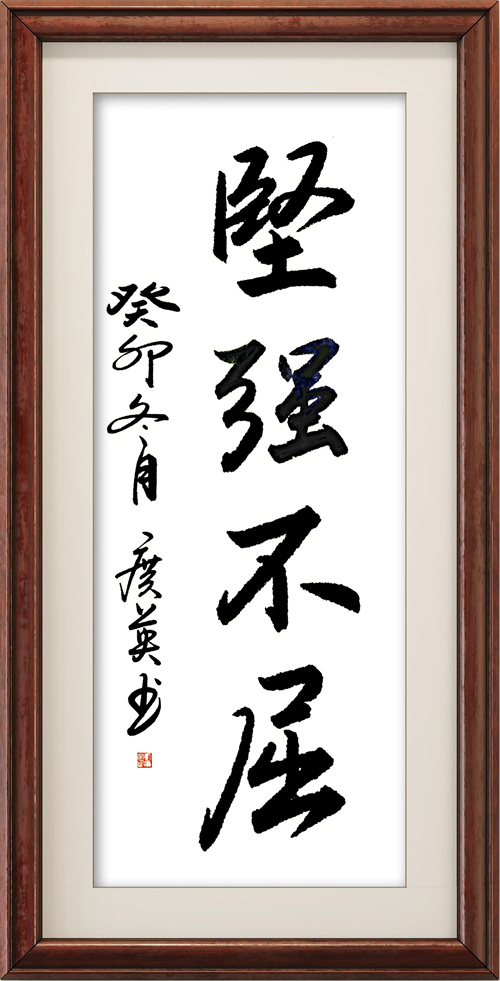 堅强不屈
癸卯冬月 廣英书